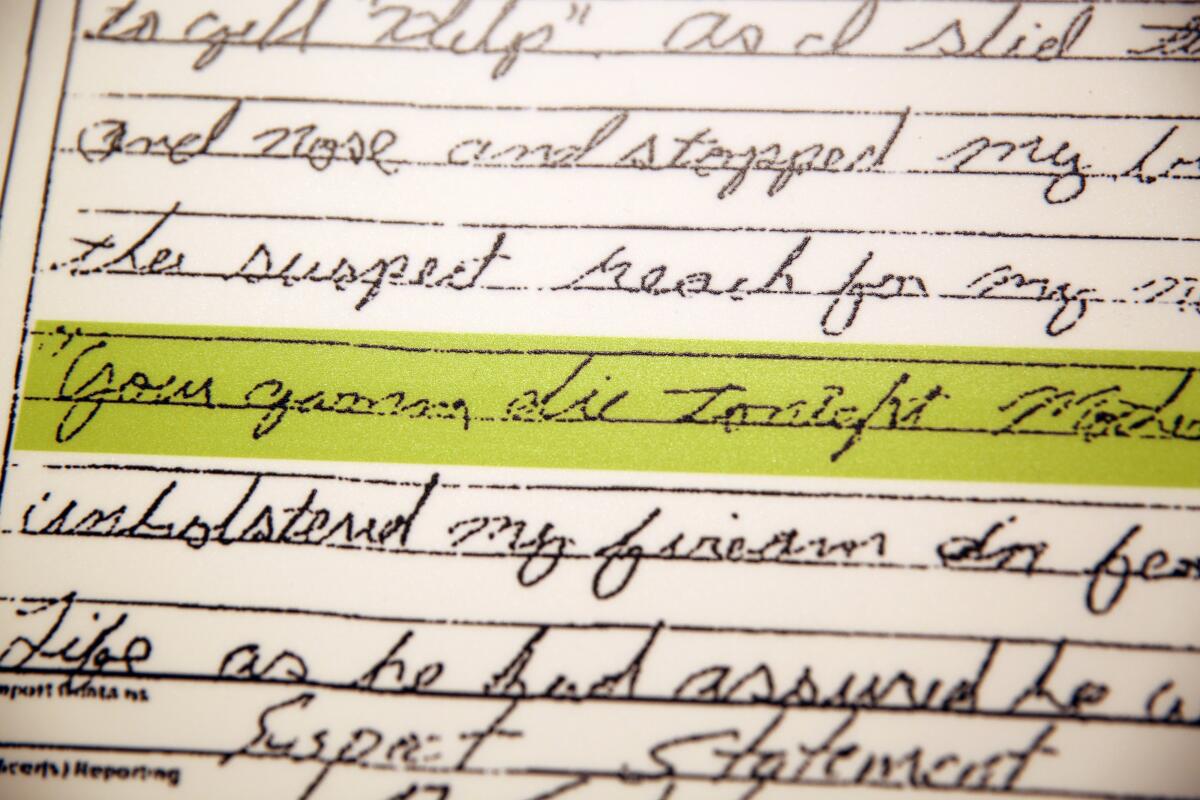 to yell "Help". As I slid
and nose and stopped my
the suspect reach for my
"Your gunna die tonight Mothe
unholstered my firearm in fea
life as he had assured he
Suspect Statement
Reporting